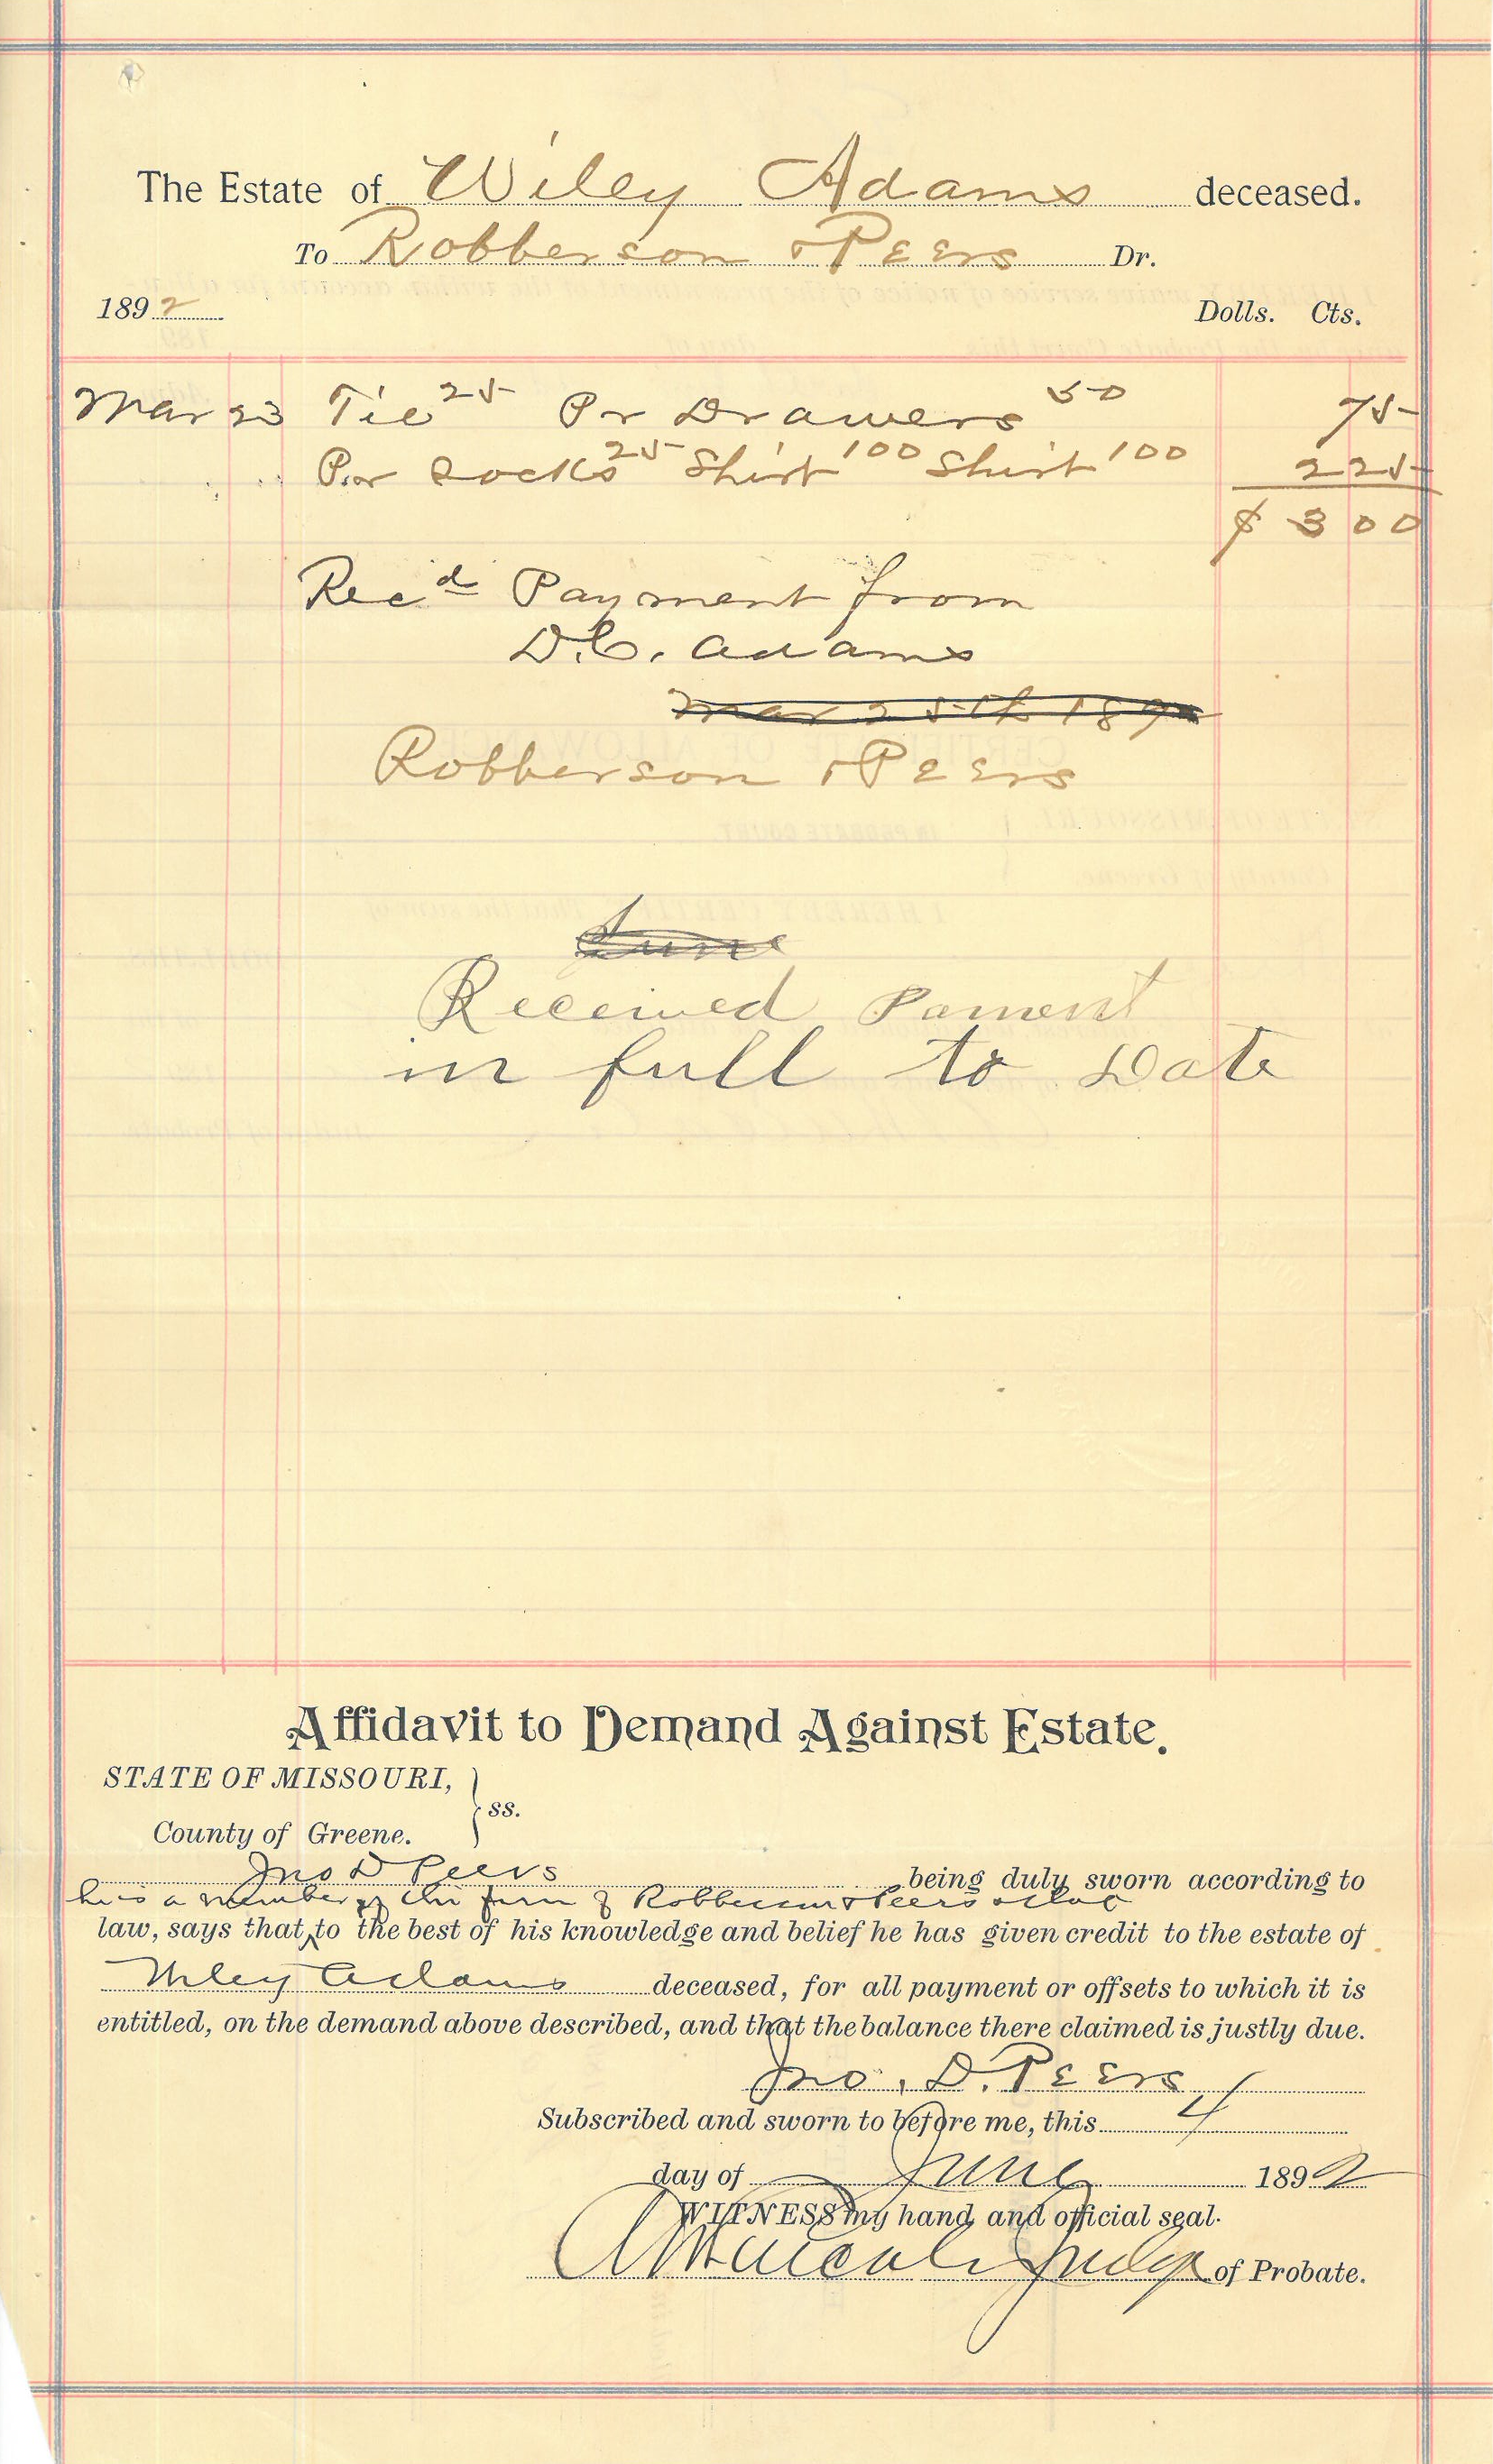 The Estate of Wiley Adams deceased.
To Robberson & Peers Dr.
1892 Dolls. Cts.
Mar 23 Tie 25 Pr Drawers 50 75
Pr Socks 25 Shirt 100 Shirt 100 2 25
$ 3 00
Rec'd Payment from
D.C. Adams
Mar 25th 189
Robberson & Peers
June
Received Pament
in full to Date
Affidavit to Demand Against Estate.
STATE OF MISSOURI,
ss.
County of Greene.
Jno D Peers being duly sworn according to
he is a member of the firm of Robberson & Peers & that
law, says that to the best of his knowledge and belief he has given credit to the estate of
Wiley Adams deceased, for all payment or offsets to which it is
entitled, on the demand above described, and that the balance there claimed is justly due.
Jno. D. Peers
Subscribed and sworn to before me, this 4
day of June 1892
WITNESS my hand and official seal.
Judge of Probate.